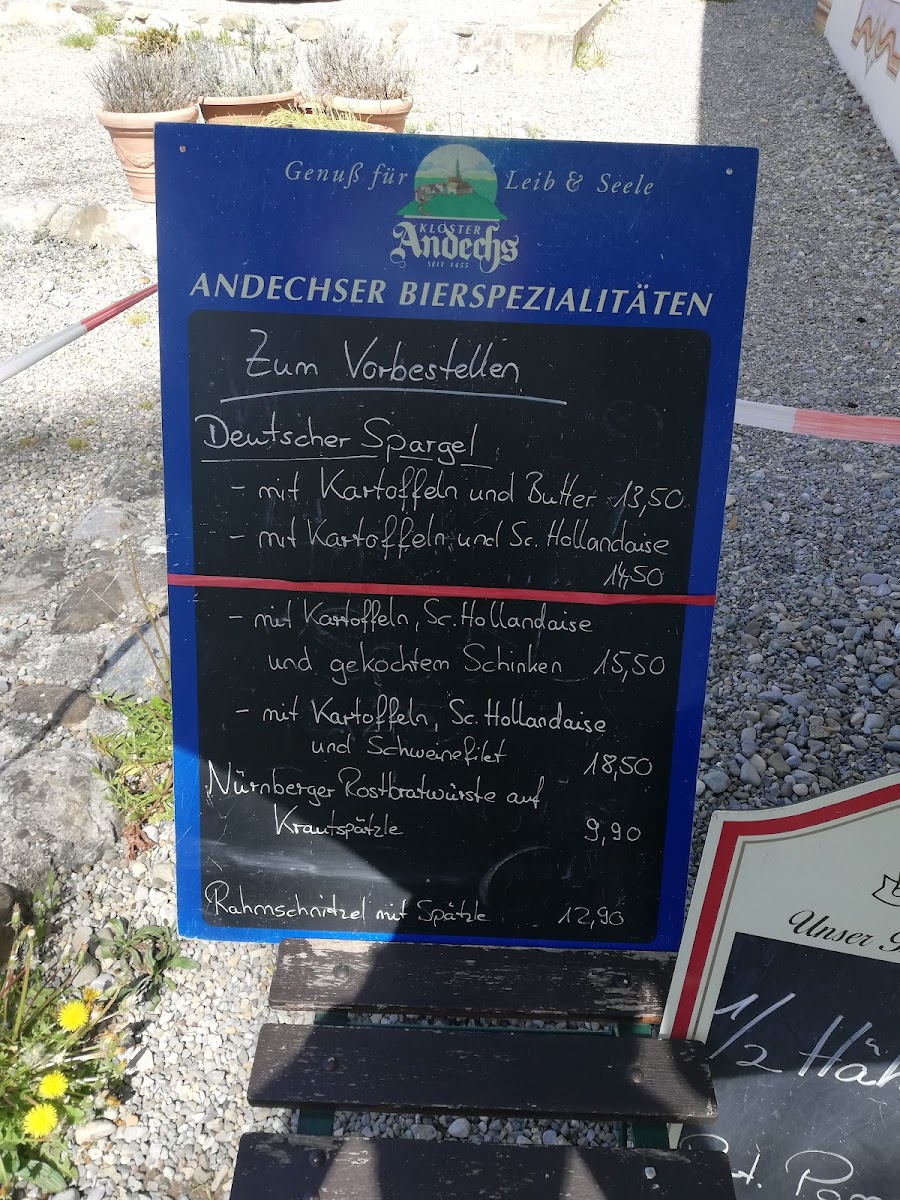 Genuß für Leib & Seele
KLOSTER
Andechs
SEIT 1455
ANDECHSER BIERSPEZIALITÄTEN
Zum Vorbestellen
Deutscher Spargel
- mit Kartoffeln und Butter 13,50
- mit Kartoffeln und Sc. Hollandaise
14,50
- mit Kartoffeln, Sc. Hollandaise
und gekochtem Schinken 15,50
- mit Kartoffeln, Sc. Hollandaise
und Schweinefilet 18,50
Nürnberger Rostbratwürste auf
Krautspätzle 9,90
Rahmschnitzel mit Spätzle 12,90
Unser
1/2 Häh